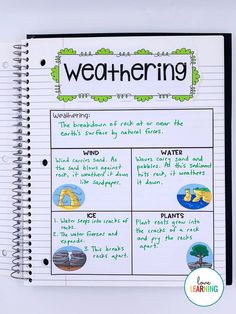 Weathering
Weathering:
The breakdown of rock at or near the
earth's surface by natural forces.
WIND
Wind carries sand. As
the sand blows against
rock, it weathers it down
like sandpaper.
WATER
Waves carry sand and
pebbles. As this sediment
hits rock, it weathers
it down.
ICE
1. Water seeps into cracks of
rocks.
2. The water freezes and
expands.
3. This breaks
rocks apart.
PLANTS
Plant roots grow into
the cracks of a rock
and pry the rocks
apart.
love
LEARNING